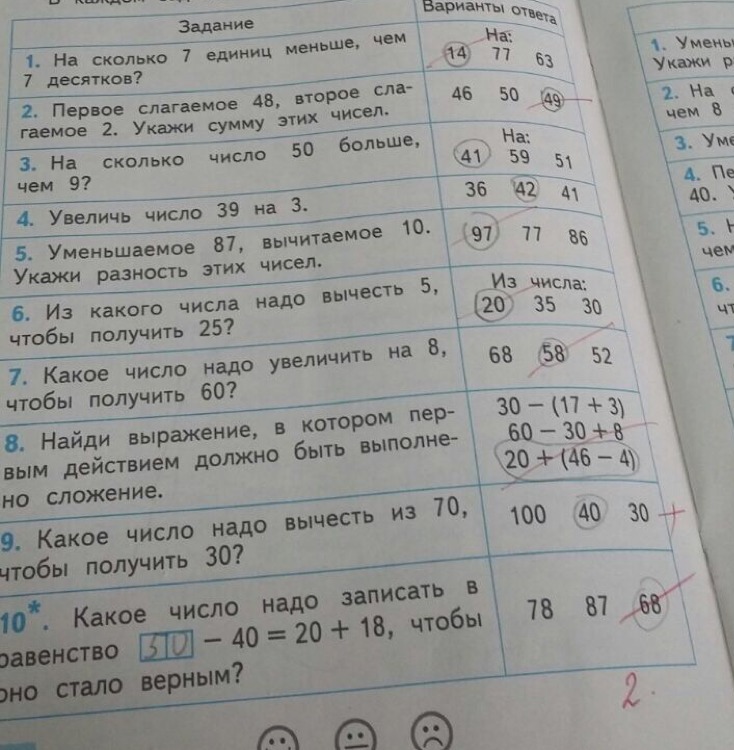 Задание
Варианты ответа
1. На сколько 7 единиц меньше, чем
7 десятков?
На:
14 77 63
2. Первое слагаемое 48, второе сла-
гаемое 2. Укажи сумму этих чисел.
46 50 49
3. На сколько число 50 больше,
чем 9?
На:
41 59 51
4. Увеличь число 39 на 3.
36 42 41
5. Уменьшаемое 87, вычитаемое 10.
Укажи разность этих чисел.
97 77 86
6. Из какого числа надо вычесть 5,
чтобы получить 25?
Из числа:
20 35 30
7. Какое число надо увеличить на 8,
чтобы получить 60?
68 58 52
8. Найди выражение, в котором пер-
вым действием должно быть выполне-
но сложение.
30 − (17 + 3)
60 − 30 + 8
20 + (46 − 4)
9. Какое число надо вычесть из 70,
чтобы получить 30?
100 40 30 +
10*. Какое число надо записать в
равенство 30 − 40 = 20 + 18, чтобы
оно стало верным?
78 87 68
2.
1. Умень
Укажи р
2. На
чем 8
3. Уме
4. Пе
40.
5.
чем
6.